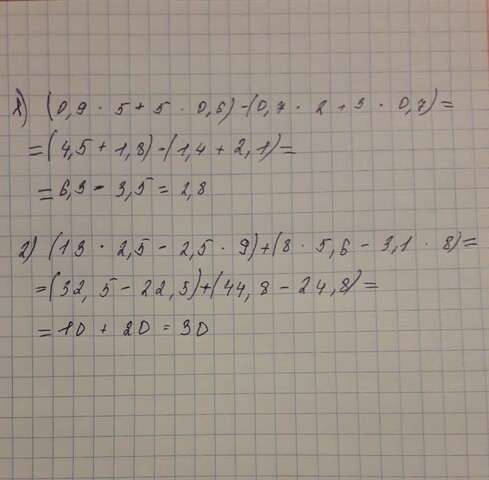 1) (0,9 · 5 + 5 · 0,6) - (0,7 · 2 + 3 · 0,7) =
= (4,5 + 1,8) - (1,4 + 2,1) =
= 6,3 - 3,5 = 2,8
2) (13 · 2,5 - 2,5 · 9) + (8 · 5,6 - 3,1 · 8) =
= (32,5 - 22,5) + (44,8 - 24,8) =
= 10 + 20 = 30